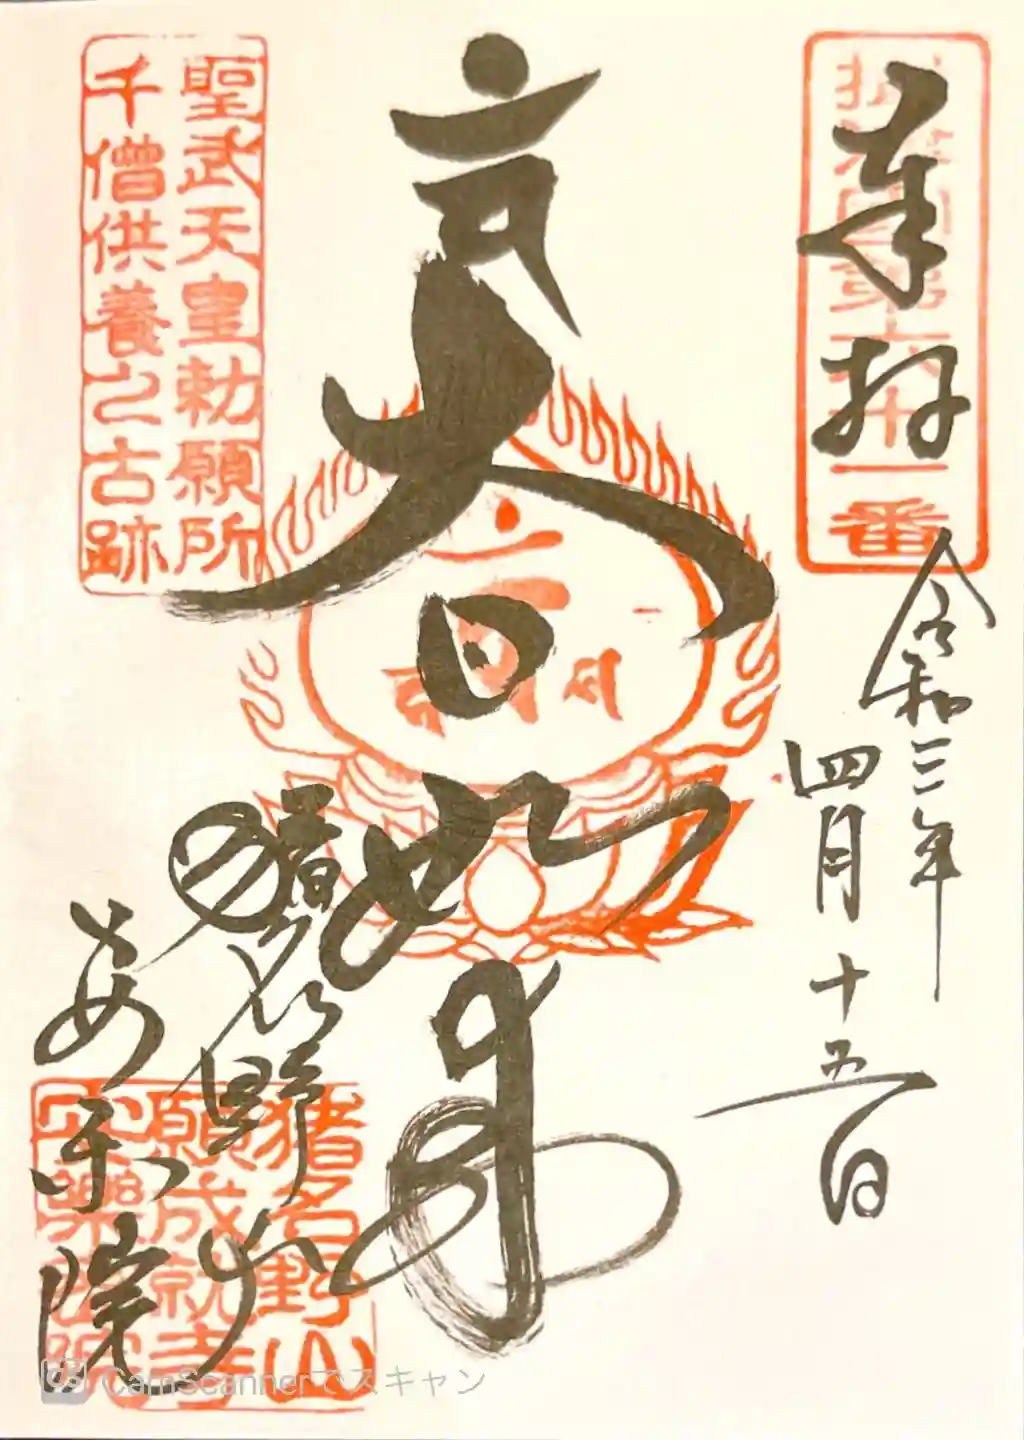 奉拝
摂津国第六十一番
令和三年
四月十五日
大日如来
聖武天皇勅願所
千僧供養之古跡
猪名野山
安楽院
猪名野山
願成就寺
安楽密院
CamScannerでスキャン